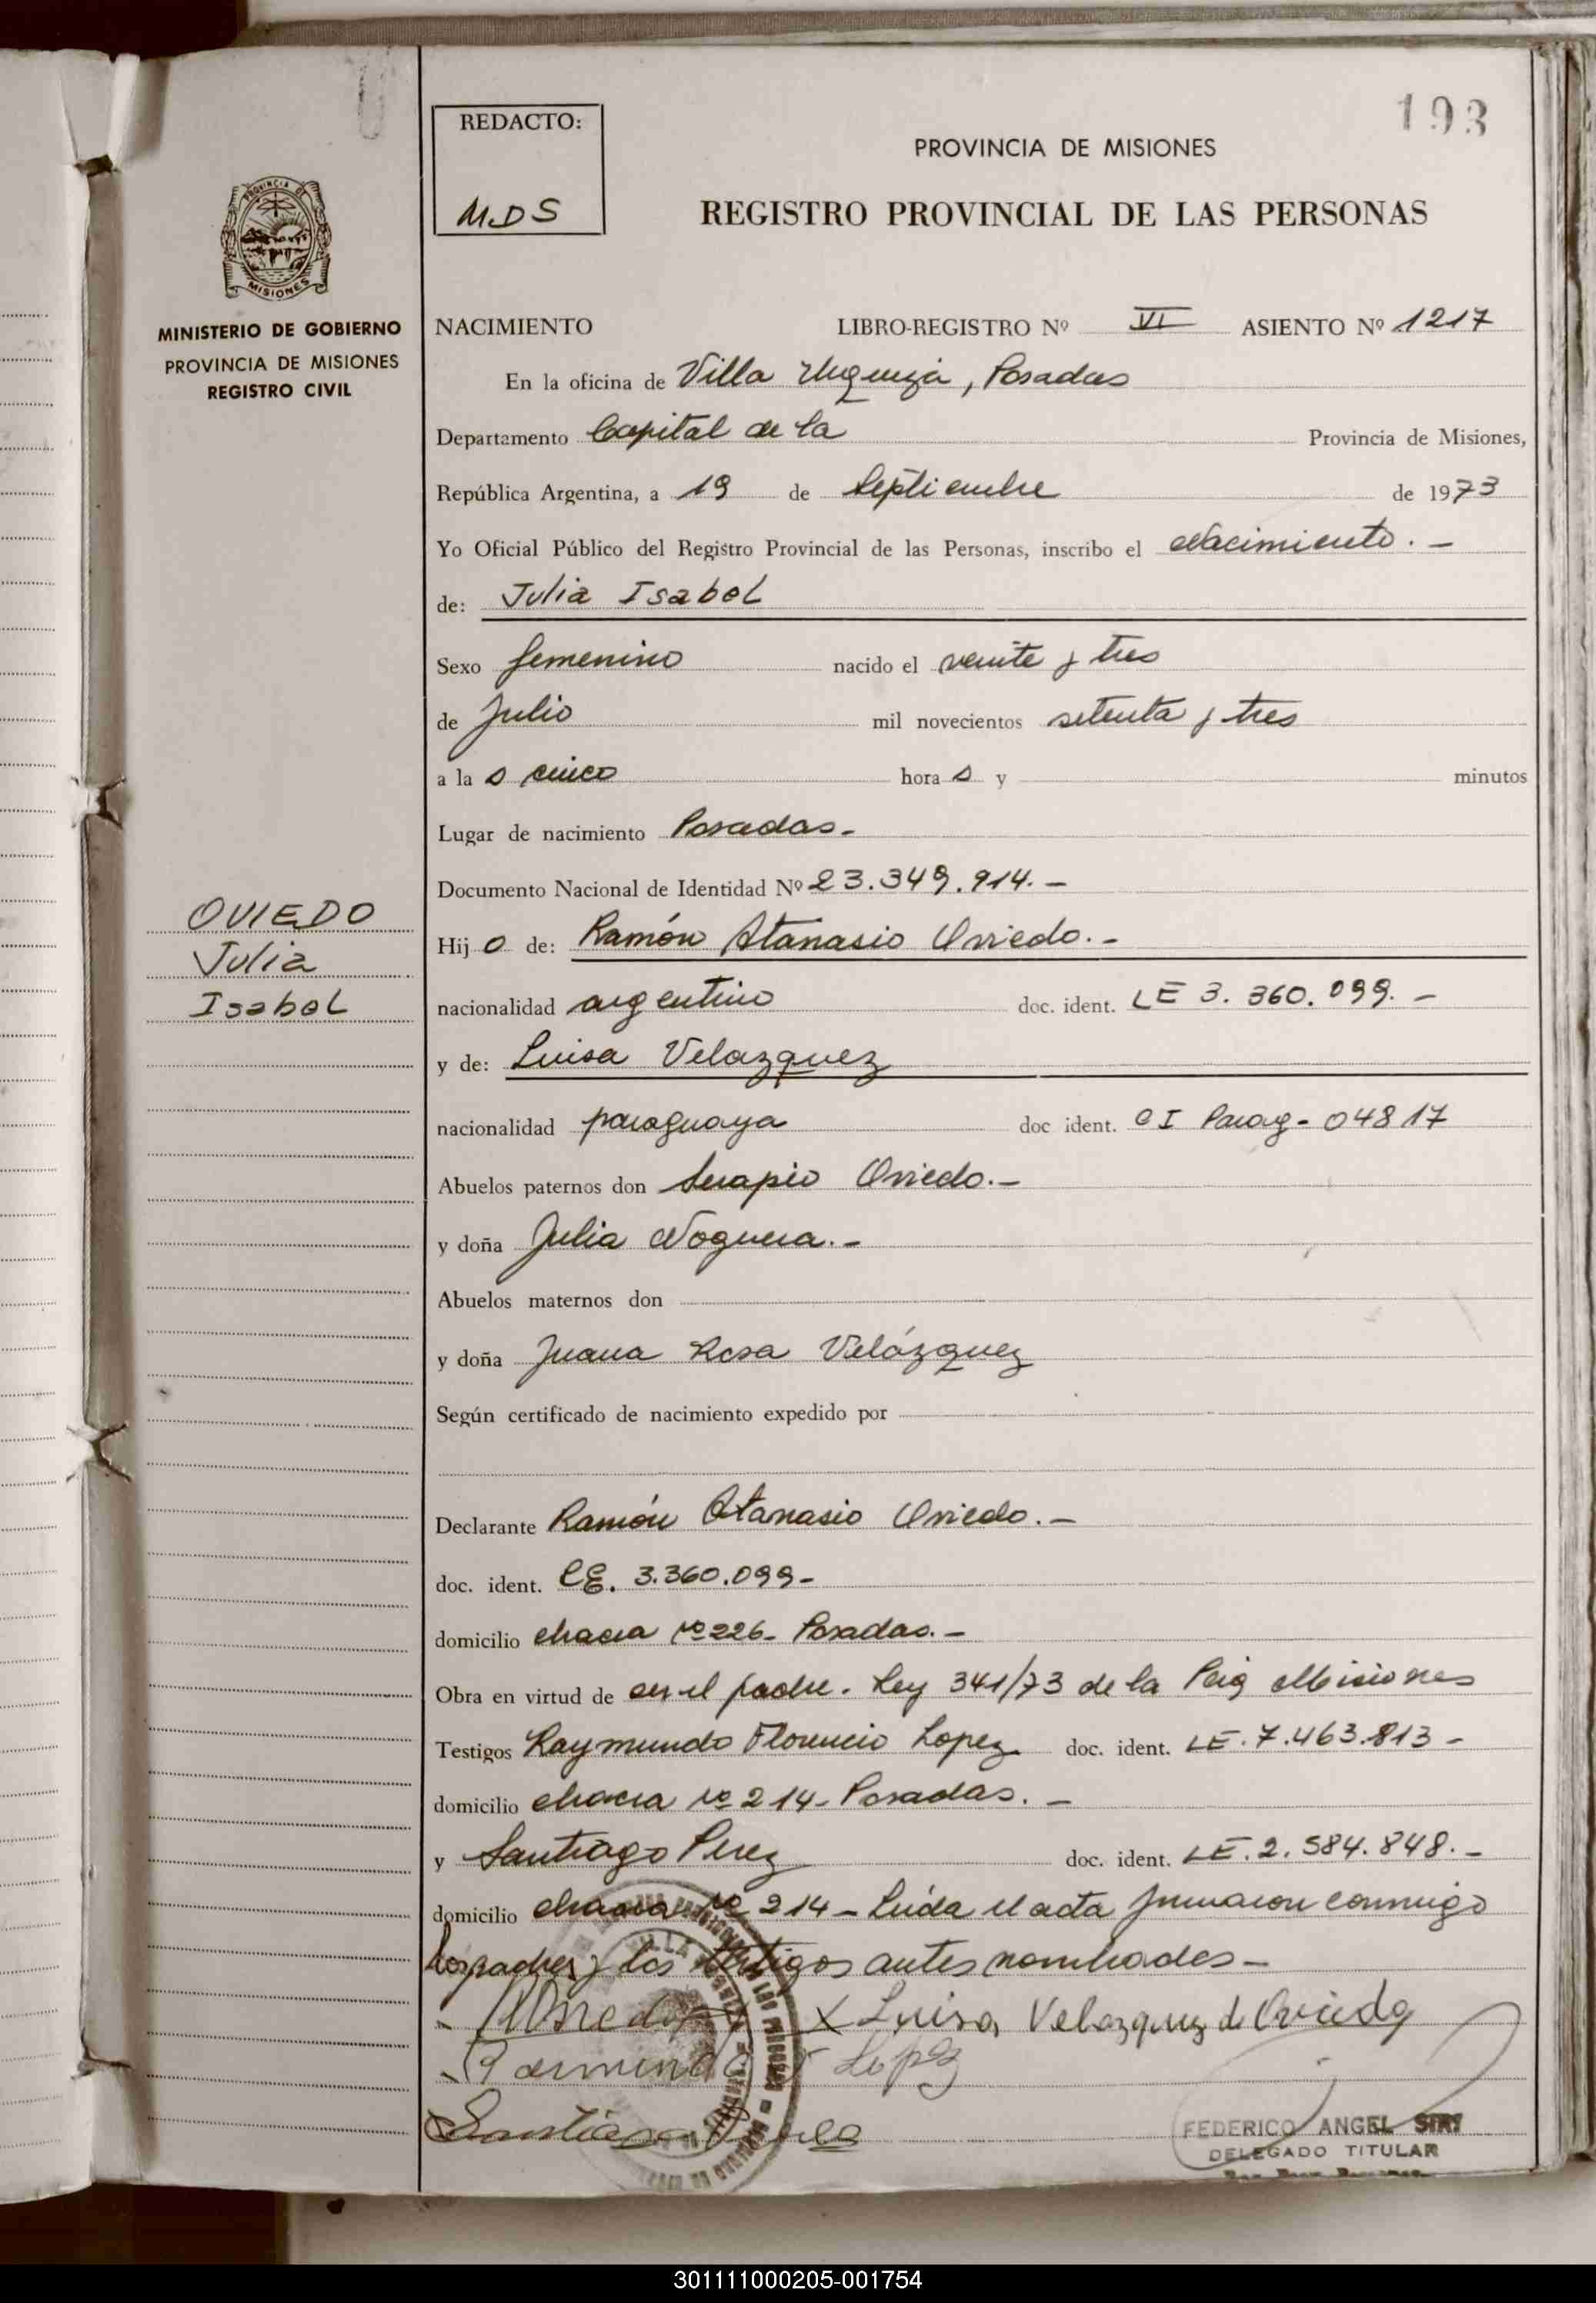 193
REDACTO:
M.D S
PROVINCIA DE MISIONES
REGISTRO PROVINCIAL DE LAS PERSONAS
MISIONES
MINISTERIO DE GOBIERNO
PROVINCIA DE MISIONES
REGISTRO CIVIL
NACIMIENTO LIBRO-REGISTRO Nº VI ASIENTO Nº 1217
En la oficina de Villa Urquiza, Posadas
Departamento Capital de la Provincia de Misiones,
República Argentina, a 19 de Septiembre de 1973
Yo Oficial Público del Registro Provincial de las Personas, inscribo el Nacimiento. -
de: Julia Isabel
Sexo femenino nacido el veinte y tres
de Julio mil novecientos setenta y tres
a la s cinco hora s y minutos
Lugar de nacimiento Posadas -
Documento Nacional de Identidad Nº 23.349.914. -
OVIEDO
Julia
Isabel
Hij o de: Ramón Atanasio Oviedo. -
nacionalidad argentino doc. ident. LE 3. 360. 099. -
y de: Luisa Velazquez
nacionalidad paraguaya doc ident. C I Parag - 04817
Abuelos paternos don Serapio Oviedo. -
y doña Julia Noguera. -
Abuelos maternos don
y doña Juana Rosa Velázquez
Según certificado de nacimiento expedido por
Declarante Ramón Atanasio Oviedo. -
doc. ident. LE. 3.360.099 -
domicilio chacra Nº 226 - Posadas. -
Obra en virtud de ser el padre. Ley 341/73 de la Pcia Misiones
Testigos Raymundo Florencio Lopez doc. ident. LE. 7.463.813 -
domicilio chacra Nº 214 - Posadas. -
y Santiago Perez doc. ident. LE. 2. 584. 848. -
domicilio chacra Nº 214 - Leida el acta firmaron conmigo
los padres y los testigos antes nombrados -
X Luisa Velazquez de Oviedo
Lopez
FEDERICO ANGEL SIRI
DELEGADO TITULAR
301111000205-001754